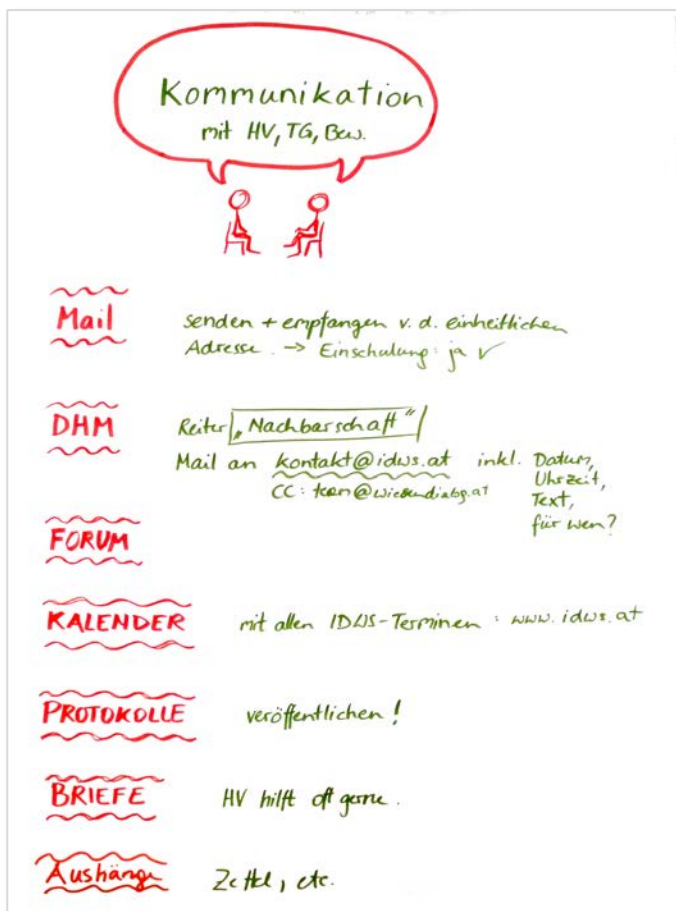 Kommunikation
mit HV, TG, Bew.
Mail senden + empfangen v. d. einheitlichen
Adresse. → Einschulung: ja ✓
DHM Reiter „Nachbarschaft"
Mail an kontakt@idws.at inkl. Datum,
CC: team@wiesendialog.at Uhrzeit,
Text,
für wen?
FORUM
KALENDER mit allen IDWS-Terminen: www.idws.at
PROTOKOLLE veröffentlichen!
BRIEFE HV hilft oft gerne.
Aushänge Zettel, etc.